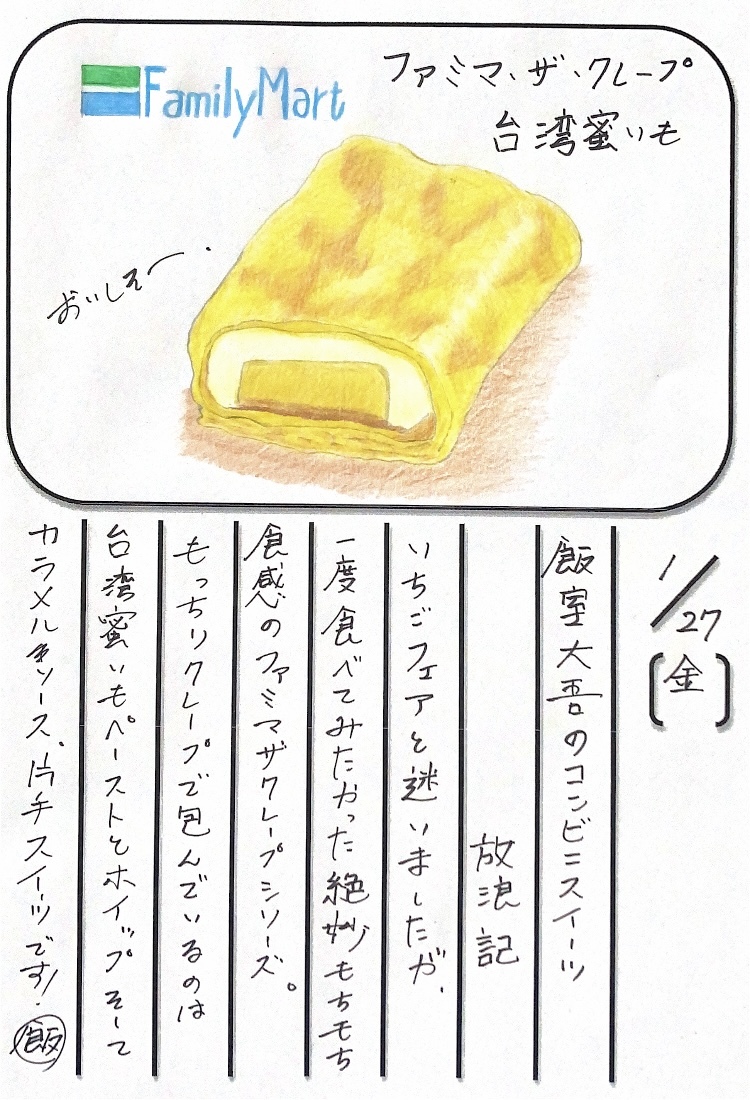 FamilyMart
ファミマ・ザ・クレープ
台湾蜜いも
おいしそー・
1/27
(金)
飯室大吾のコンビニスイーツ
放浪記
いちごフェアと迷いましたが、
一度食べてみたかった絶妙もちモチ
食感のファミマザクレープシリーズ。
もっちりクレープで包んでいるのは
台湾蜜いもペーストとホイップそして
カラメル色ソース、片手スイーツです!
飯